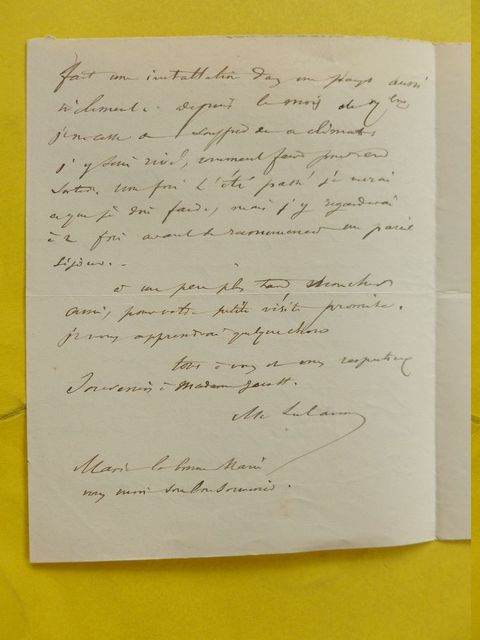 fait une installation dans un pays aussi
inclément. Depuis le mois de 9bre
je ne cesse de souffrir de ce climat,
j'y suis rivé, vraiment faire pour en
sortir. Une fois l'été passé je verrai
ce que je dois faire, mais j'y regarderai
à 2 fois avant de recommencer un pareil
séjour.
et un peu plus tard mon cher
ami, pour votre petite visite promise.
je vous apprendrai quelque chose
tout à vous et mes respectueux
souvenirs à Madame
Marie la bonne Marie
vous envoie son bon souvenir.